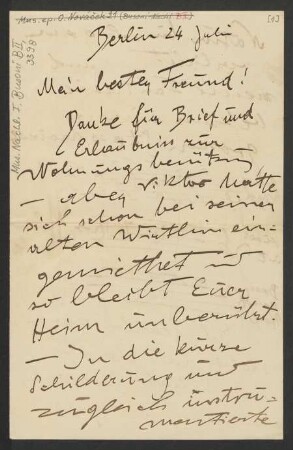 Mus. ep. O. Novaček 21 (Busoni-Nachl. B II)
[1]
Mus. Nachl. F. Busoni B II, 3598
Berlin 24 Juli
Mein bester Freund!
Danke für Brief und
Erlaubniss zur
Wohnungsbenützung
– aber Viktor hatte
sich schon bei seiner
alten Wirthin ein=
gemiethet u
so bleibt Euer
Heim unberührt.
– In die kurze
Schilderung und
zugleich instru=
mentierte